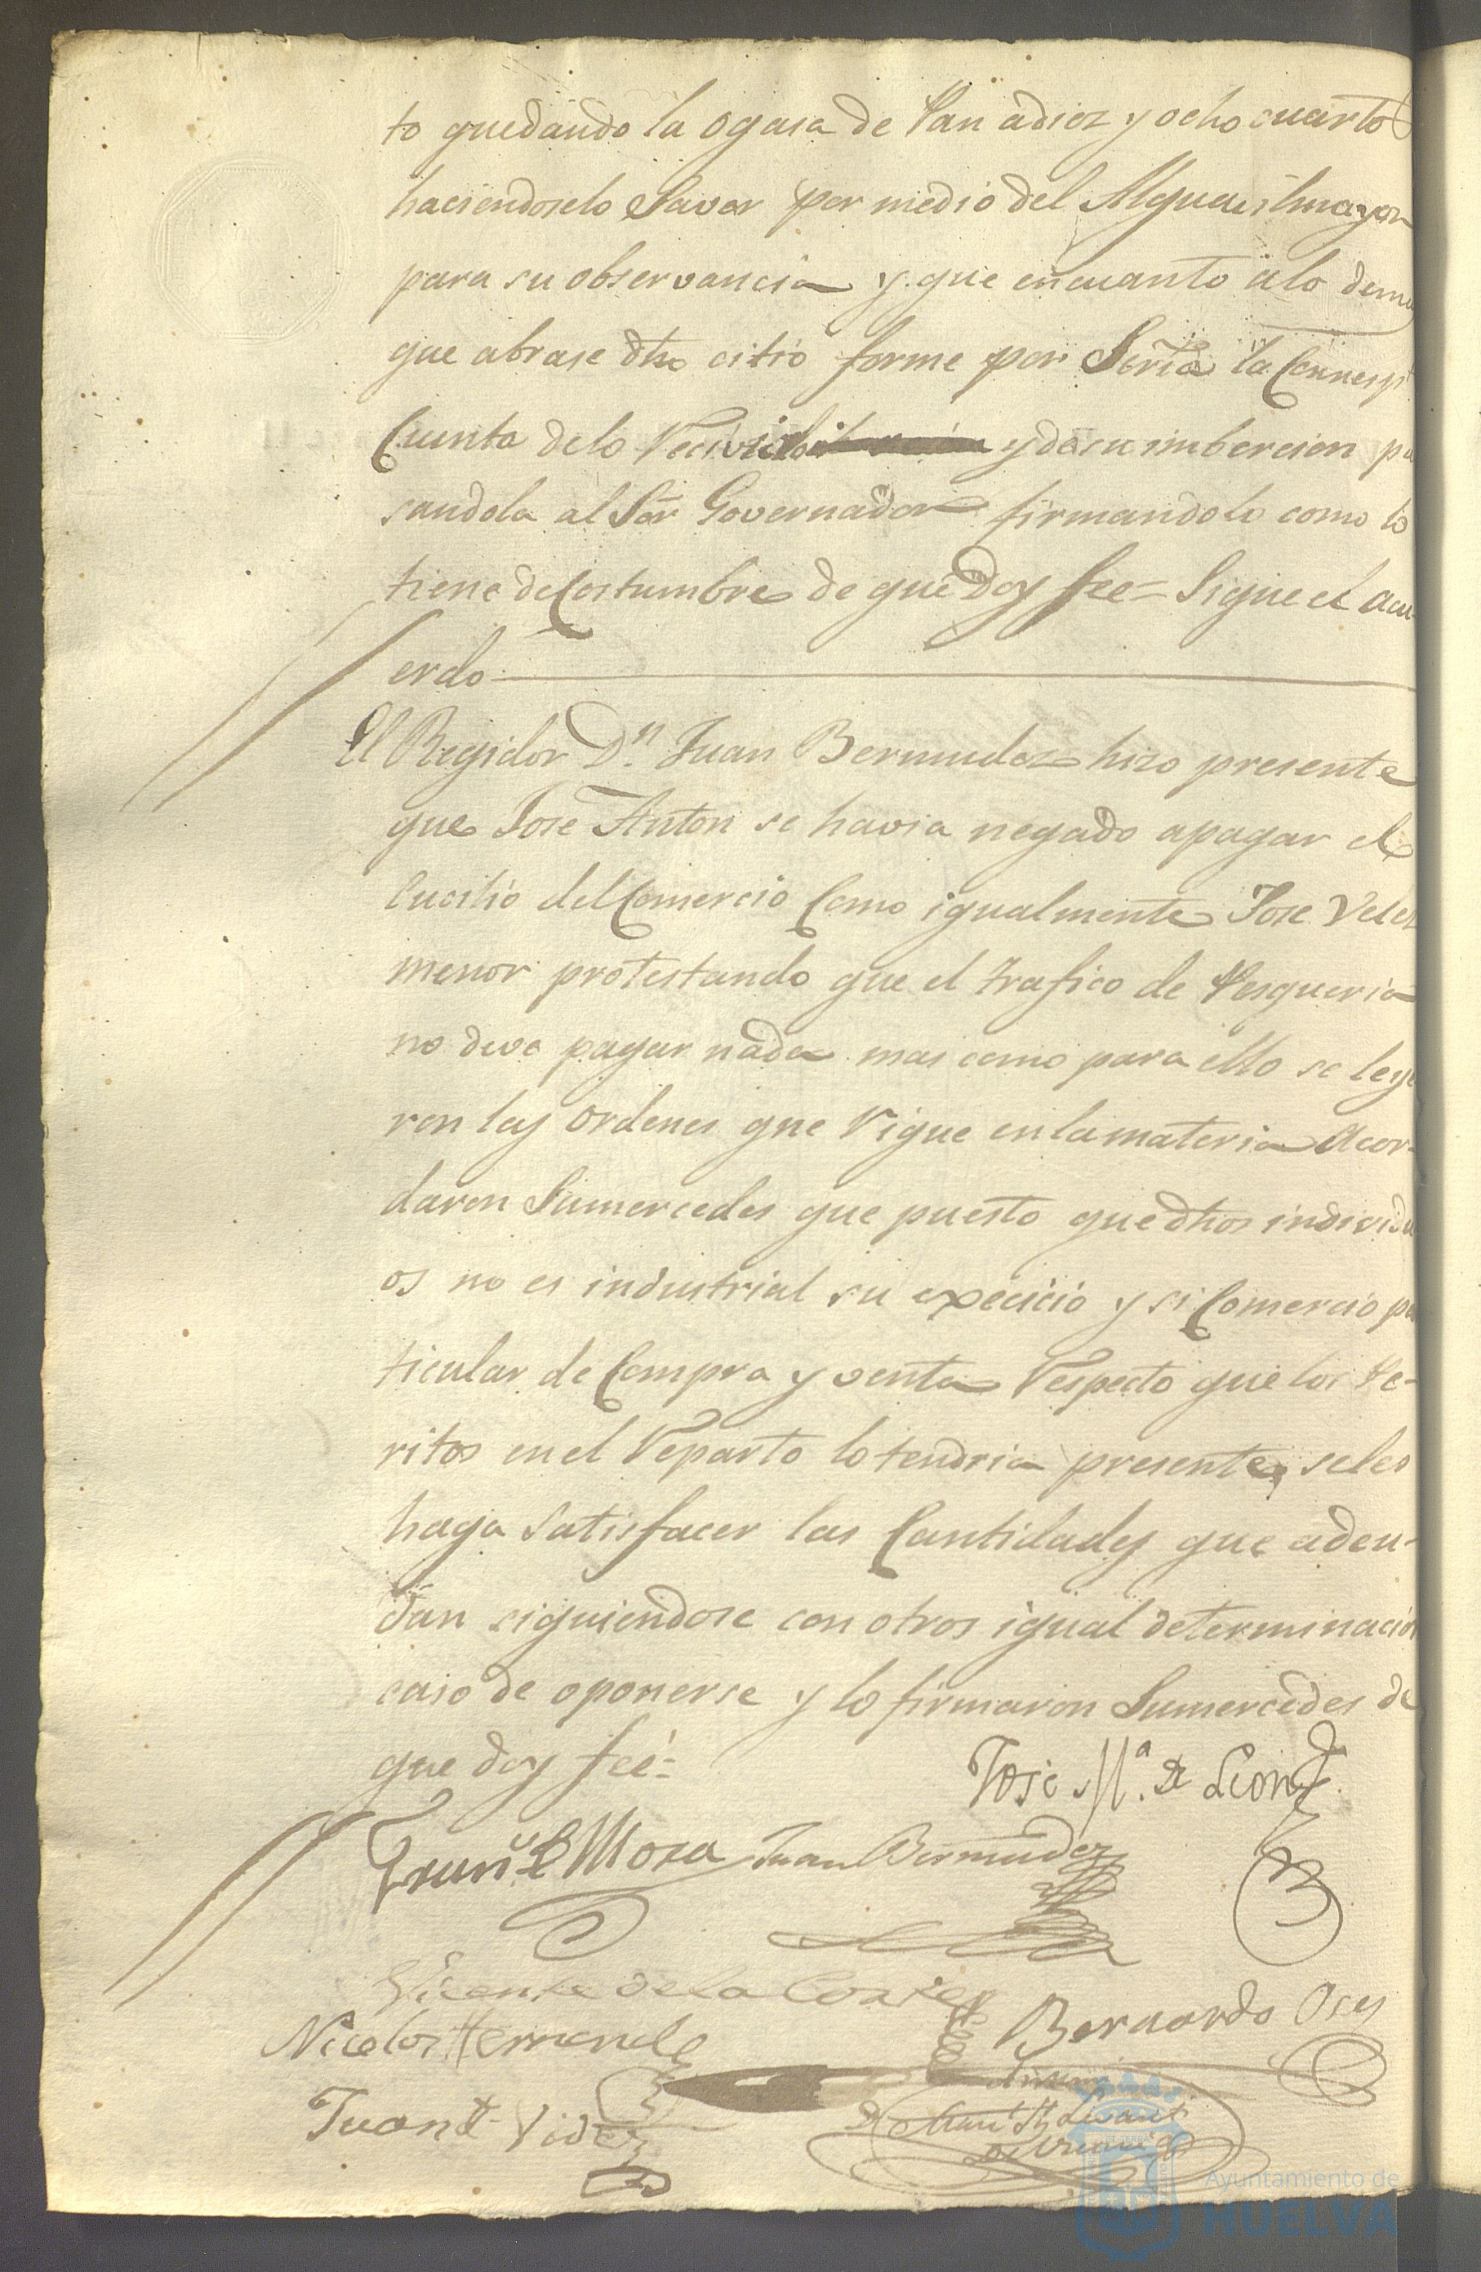 to quedando la ogasa de Pan adiez y ocho cuarto
haciendoselo Saver por medio del Alguasilmayor
para su observancia y que encuanto alo dema
que abrase dho citio forme por Sřria la Correspt
Cuenta delo Recivido y desu imbercion pa
sandola al Sor Governador firmandolo como lo
tiene de Costumbre de que Doy fee= Sigue el acu-
erdo
El Regidor Dn Juan Bermudez hizo presente
que Jose Anton se havia negado apagar el
Cucilio del Comercio Como igualmente Jose Velez
menor protestando que el trafico de Pesqueria
no deve pagar nada mas como para ello se leye
ron las ordenes que Rigue enlamateria Acor-
daron Sumercedes que puesto que dhos individu
os no es industrial su execicio y si Comercio par
ticular de Compra y venta Respecto que los Pe-
ritos en el Reparto lo tendria presente, seles
haga Satisfacer las Cantidades que adeu-
dan siguiendose con otros igual determinacion
caso de oponerse y lo firmaron Sumercedes de
que doy feé=
Jose Ma. de Leon
Mora Juan Bermudez
Vicente de la Corte
Bernardo
Nicolos Hernande
Juan
Ayuntamiento de
HUELVA